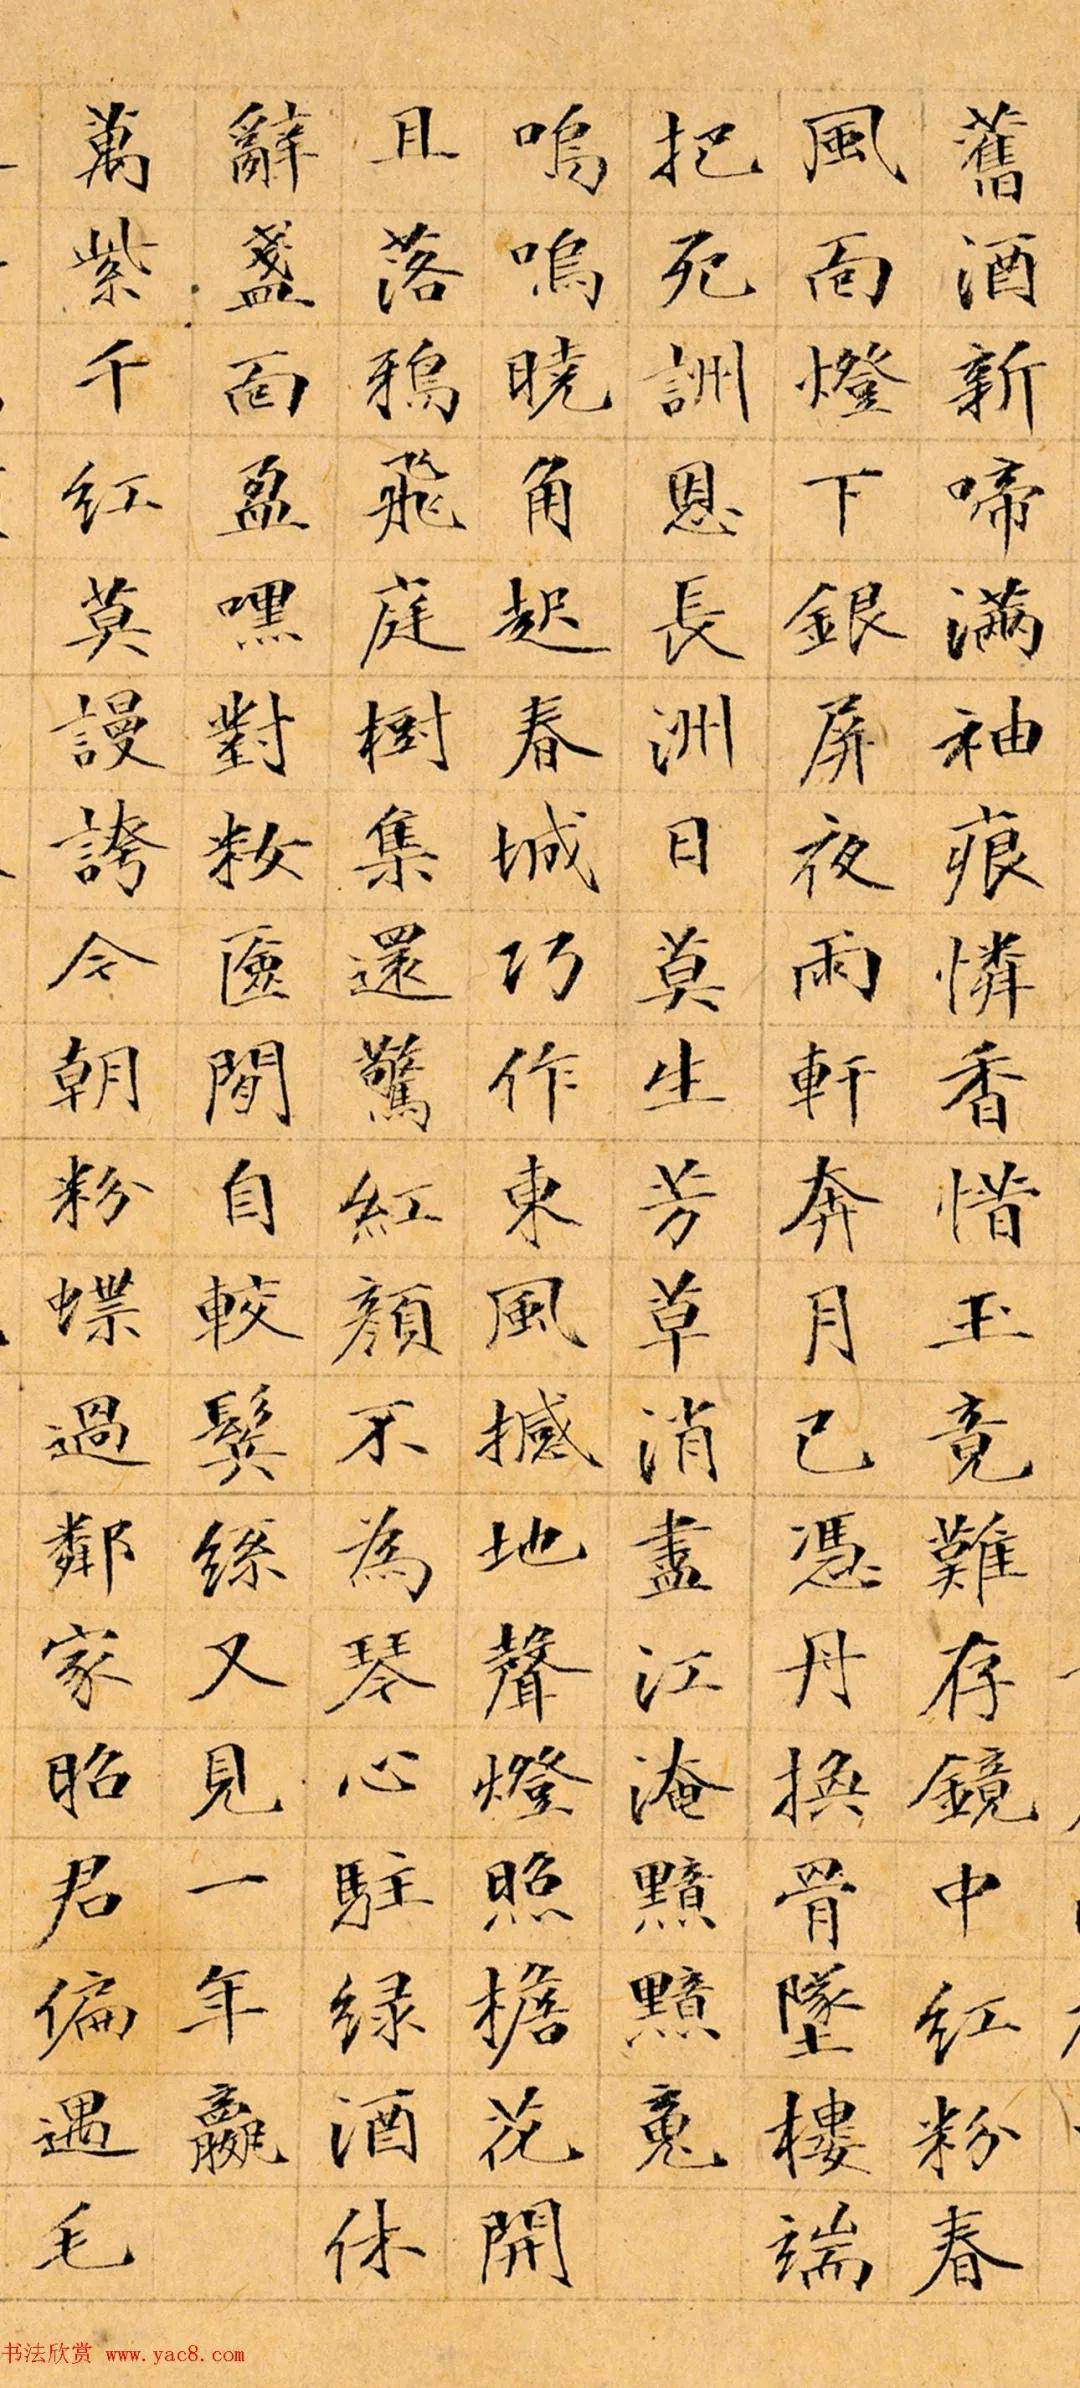 舊酒新啼滿袖痕憐香惜玉竟難存鏡中紅粉春
風面燈下銀屏夜雨軒奔月已憑丹換骨墜樓端
把死詶恩長洲日莫生芳草消盡江淹黯黯䰟
嗚嗚曉角起春城巧作東風撼地聲燈照檐花開
且落鴉飛庭樹集還驚紅顏不為琴心駐綠酒休
辭盞面盈嘿對籹匳閒自較鬢絲又見一年贏
萬紫千紅莫謾誇今朝粉蝶過鄰家昭君偏遇毛
书法欣赏 www.yac8.com